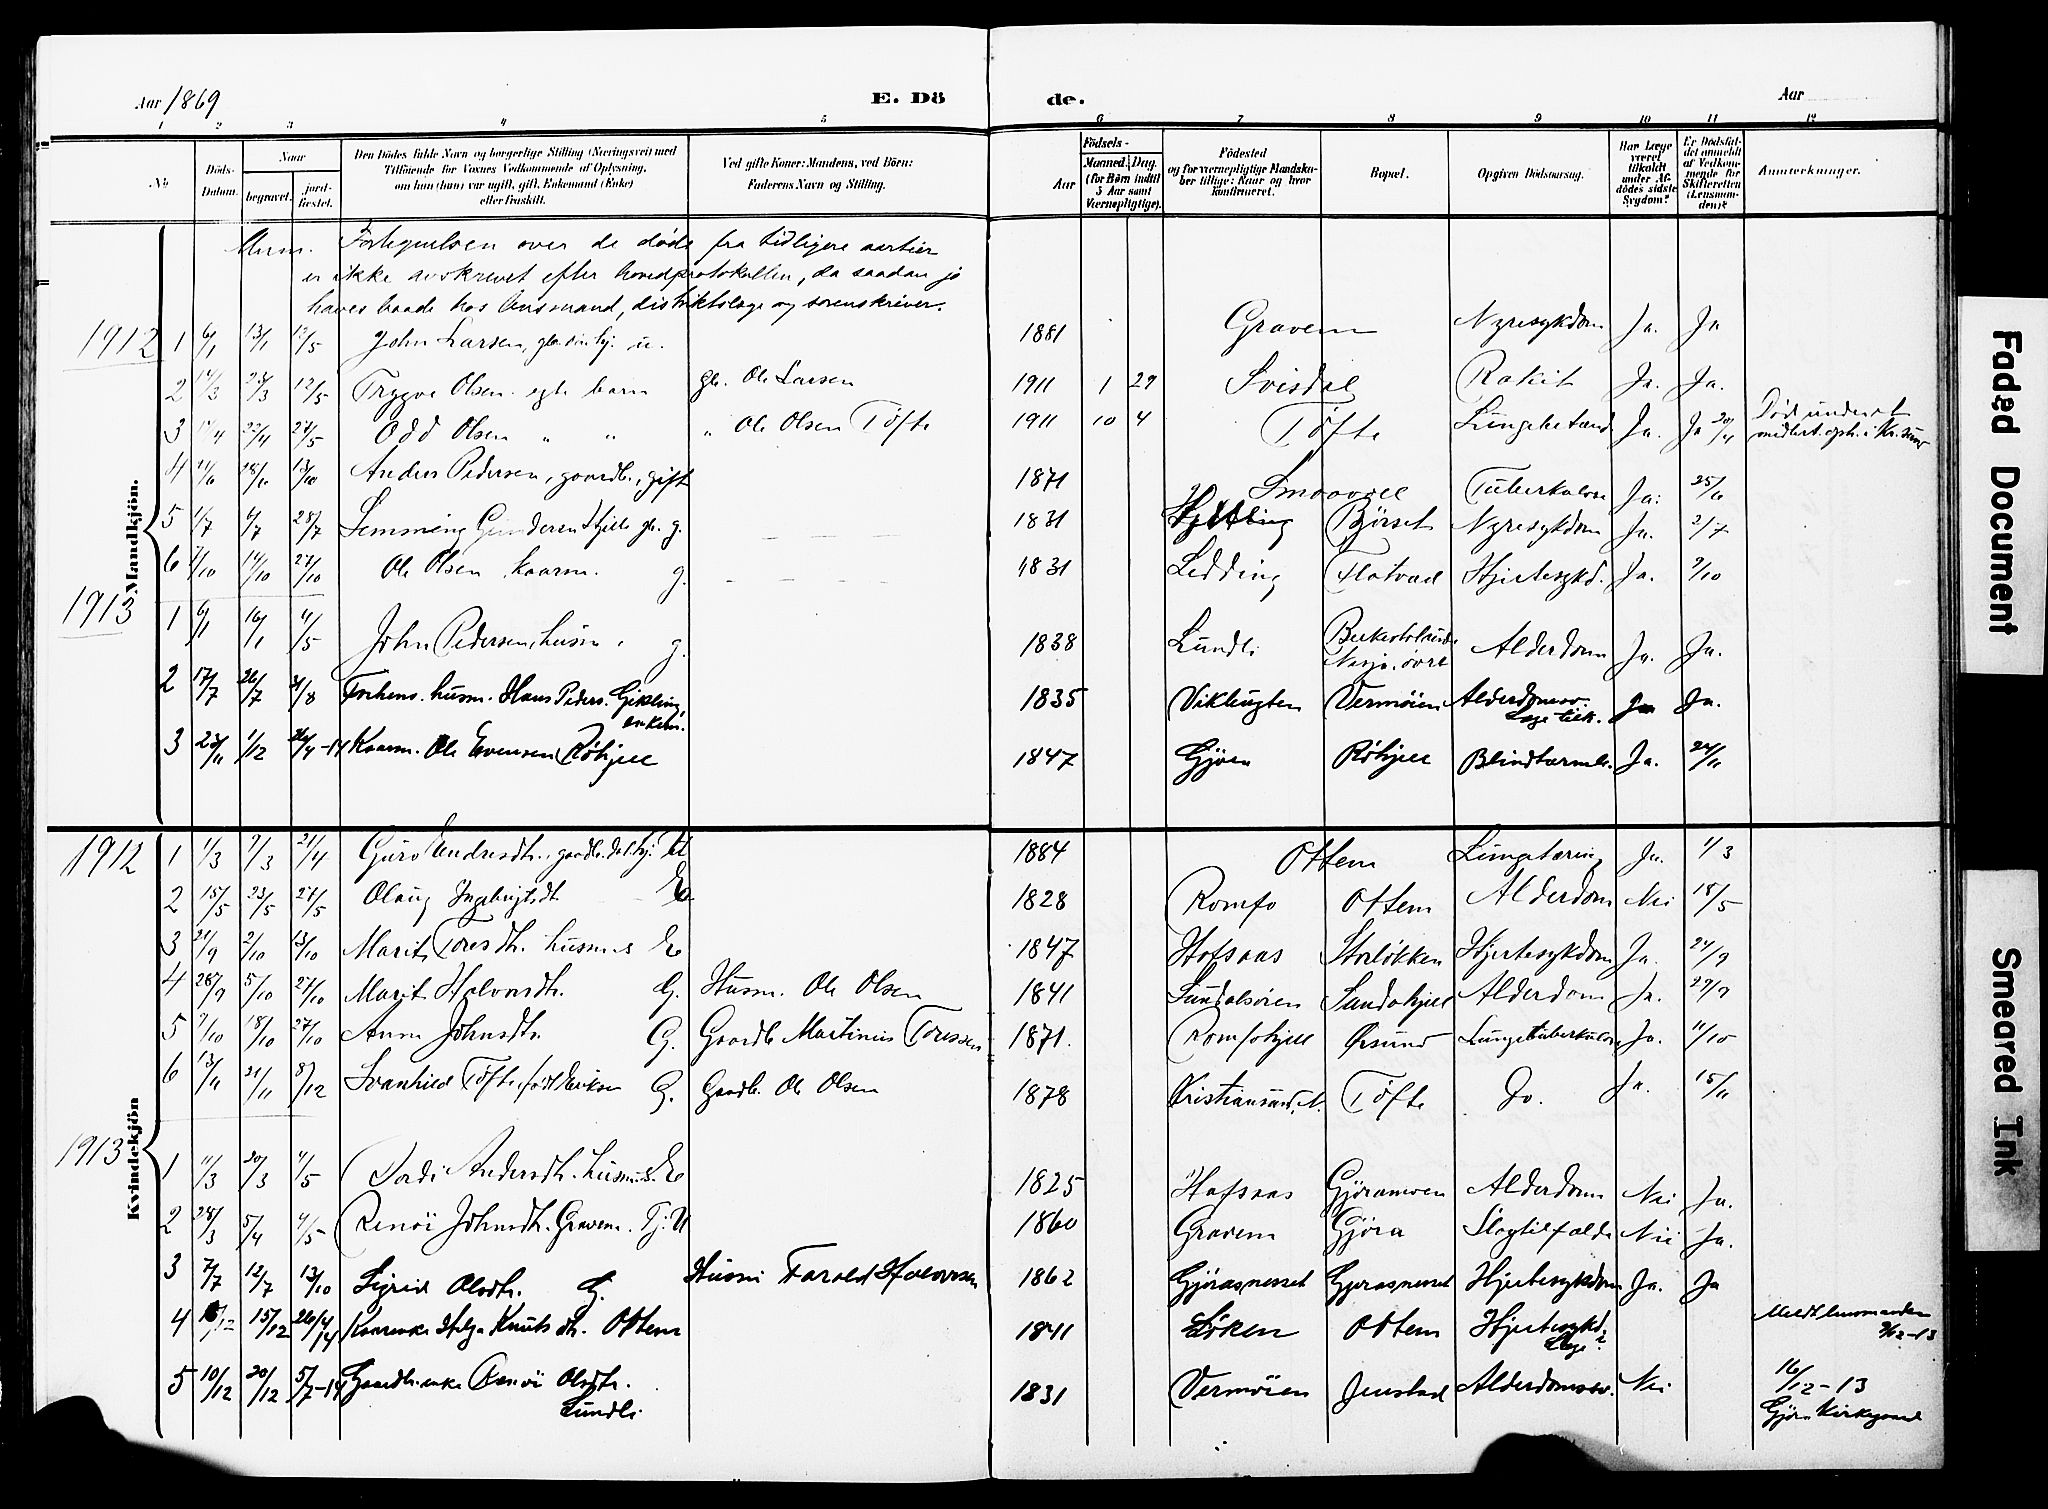 Aar 1869 E. Dö de. Aar
1 2 3 4 5 6 7 8 9 10 11 12
No
Döds-Datum.
Naar
begravet.
jord-fæstet.
Den Dödes fulde Navn og borgerlige Stilling (Næringsvei) med
Tilföiende for Voxnes Vedkommende af Oplysning,
om han (hun) var ugift, gift, Enkemand (Enke)
eller fraskilt.
Ved gifte Koner: Mandens, ved Börn:
Faderens Navn og Stilling.
Aar
Födsels-
Maaned. Dag.
(for Börn indtil
5 Aar samt
Værnepligtige).
Födested
og for værnepligtige Mandska-
ber tillige: Naar og hvor
konfirmeret.
Bopæl.
Opgiven Dödsaarsag.
Har Læge
været
tilkaldt
under Af-
dödes sidste
Sygdom?
Er Dödsfal-
det anmeldt
af Vedkom-
mende for
Skifteretten
(Lensman-
den)?
Anmærkninger.
Anm. Fortegnelsen over de døde fra tidligere aartier
er ikke avskrevet efter hovedprotokollen, da saadan jo
haves baade hos lensmand, distriktslæge og sorenskriver.
Mandkjön.
1912 1 6/1 13/1 12/5 John Larsen, u. 1881 Gravem Nyresykdom Ja. Ja
2 14/3 23/3 12/5 Trygve Olsen egte barn gb. Ole Larsen 1911 1 29 Svisdal Rakit Ja. Ja.
3 22/4 27/5 Odd Olsen " " " Ole Olsen Tøfte 1911 10 4 Tøfte Ja. Ja 20/4 Død under et
midlert. oph. i Kr.sund
4 13/10 Anders Pedersen, gaardb., gift 1871 Smaavoll Tuberkulose Ja. 25/6
5 1/7 6/7 28/7 Lemming Gundersen Hjelle gb. g. 1831 Børset Nyresykdom Ja. 2/7
6 7/10 14/10 27/10 Ole Olsen, kaarm. g. 1831 Ledding Flatvad Hjertesykd. Ja. 9/10
1913 1 6/1 16/1 4/5 John Pedersen, husm. g. 1838 Lundli Nisja øvre Alderdom Ja. Ja.
2 17/7 26/7 31/8 Forhens. husm. Hans Peders. Gikling,
enkem. 1835 Viklingten Vermøien Alderdomssv.
Læge tilk. Ja Ja.
3 23/11 1/12 26/4-14 Kaarm. Ole Evensen Røkjell 1847 Gjøra Røkjell Blindtarmb. Ja. 24/11
Kvindekjön
1912 1 1/3 9/3 21/4 Guro Endresdtr., gaardb. dat. tj. U 1884 Ottem Lungetæring Ja. 1/3
2 15/5 23/5 27/5 Olaug Ingebrigtsdt. E. 1828 Romfo Ottem Alderdom Nei 18/5
3 21/9 2/10 13/10 Marit Toresdtr. husms E 1847 Hofsaas Storløkken Hjertesykdom Ja. 24/9
4 28/9 5/10 27/10 Marit Halvorsdtr. G. Husm. Ole Olsen 1841 Sundalsøren Sandokjell Alderdom Ja. 29/9
5 9/10 18/10 27/10 Anne Johnsdtr. G. Gaardb. Martinus Toressen 1871. Romfokjell Ørsund Lungetuberkulose Ja. 11/10
6 13/11 21/11 8/12 Svanhild Tøfte født Eriksen G. Gaardb. Ole Olsen 1878 Kristiansund N. Tøfte Do. Ja. 15/11
1913 1 11/3 20/3 4/5 Dordi Andersdtr. husms. E 1825 Hofsaas Gjøramoen Alderdom Nei Ja.
2 28/3 5/4 4/5 Rønnøi Johnsdtr. Gravem. Tj. U 1860 Gravem Gjøra Slagtilfælde Nei Ja.
3 7/7 12/7 13/10 Sigrid Olsdtr. G. Husm Harald Halvorsen 1862 Gjørasnesset Gjørasnesset Hjertesykdom Ja. Ja
4 15/12 26/4 14 Kaarenke Helga Knuts dtr. Ottem 1841 Løken Ottem Hjertesykd.
Læge? Meldt lensmanden
9/12-13
5 10/12 20/12 5/7-14 Gaardb.enke Rønnøi Olsdtr.
Lundli 1831 Vermøien Jenstad Alderdomssv. Nei 16/12-13
Gjøra Kirkegaard
Faded Document
Smeared Ink